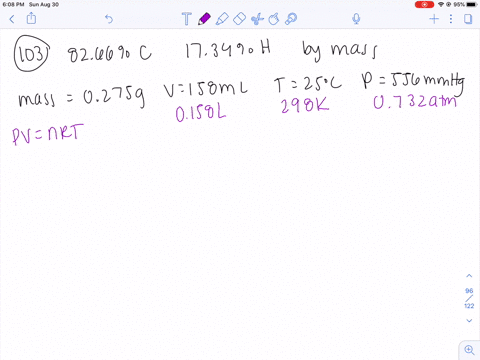 6:08 PM Sun Aug 30
95%
103 82.66% C 17.34% H by mass
mass = 0.275g V = 158mL T = 25°C P = 556mmHg
0.158L 298K 0.732atm
PV = nRT
96
/
122